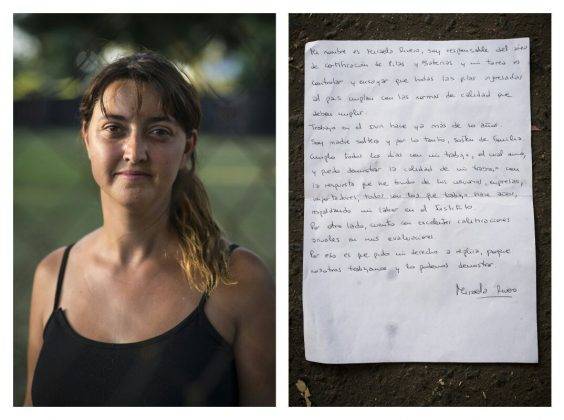 Mi nombre es Micaela Rivero, soy responsable del área
de certificación de Pilas y Baterías y mi tarea es
controlar y ensayar que todas las pilas ingresadas
al país cumplan con las normas de calidad que
deben cumplir.
Trabajo en el INTI hace ya más de 10 años.
Soy madre soltera y por lo tanto, sostén de familia.
Cumplo todos los días con mi trabajo, el cual amo,
y puedo demostrar la calidad de mi trabajo con
la respuesta que he tenido de los usuarios, empresas,
importadores, todos con los que trabajo hace años,
respaldando mi labor en el Instituto
Por otro lado, cuento con excelentes calificaciones
anuales en mis evaluaciones
Por eso es que pido mi derecho a réplica, porque
nosotros trabajamos y lo podemos demostrar
Micaela Rivero